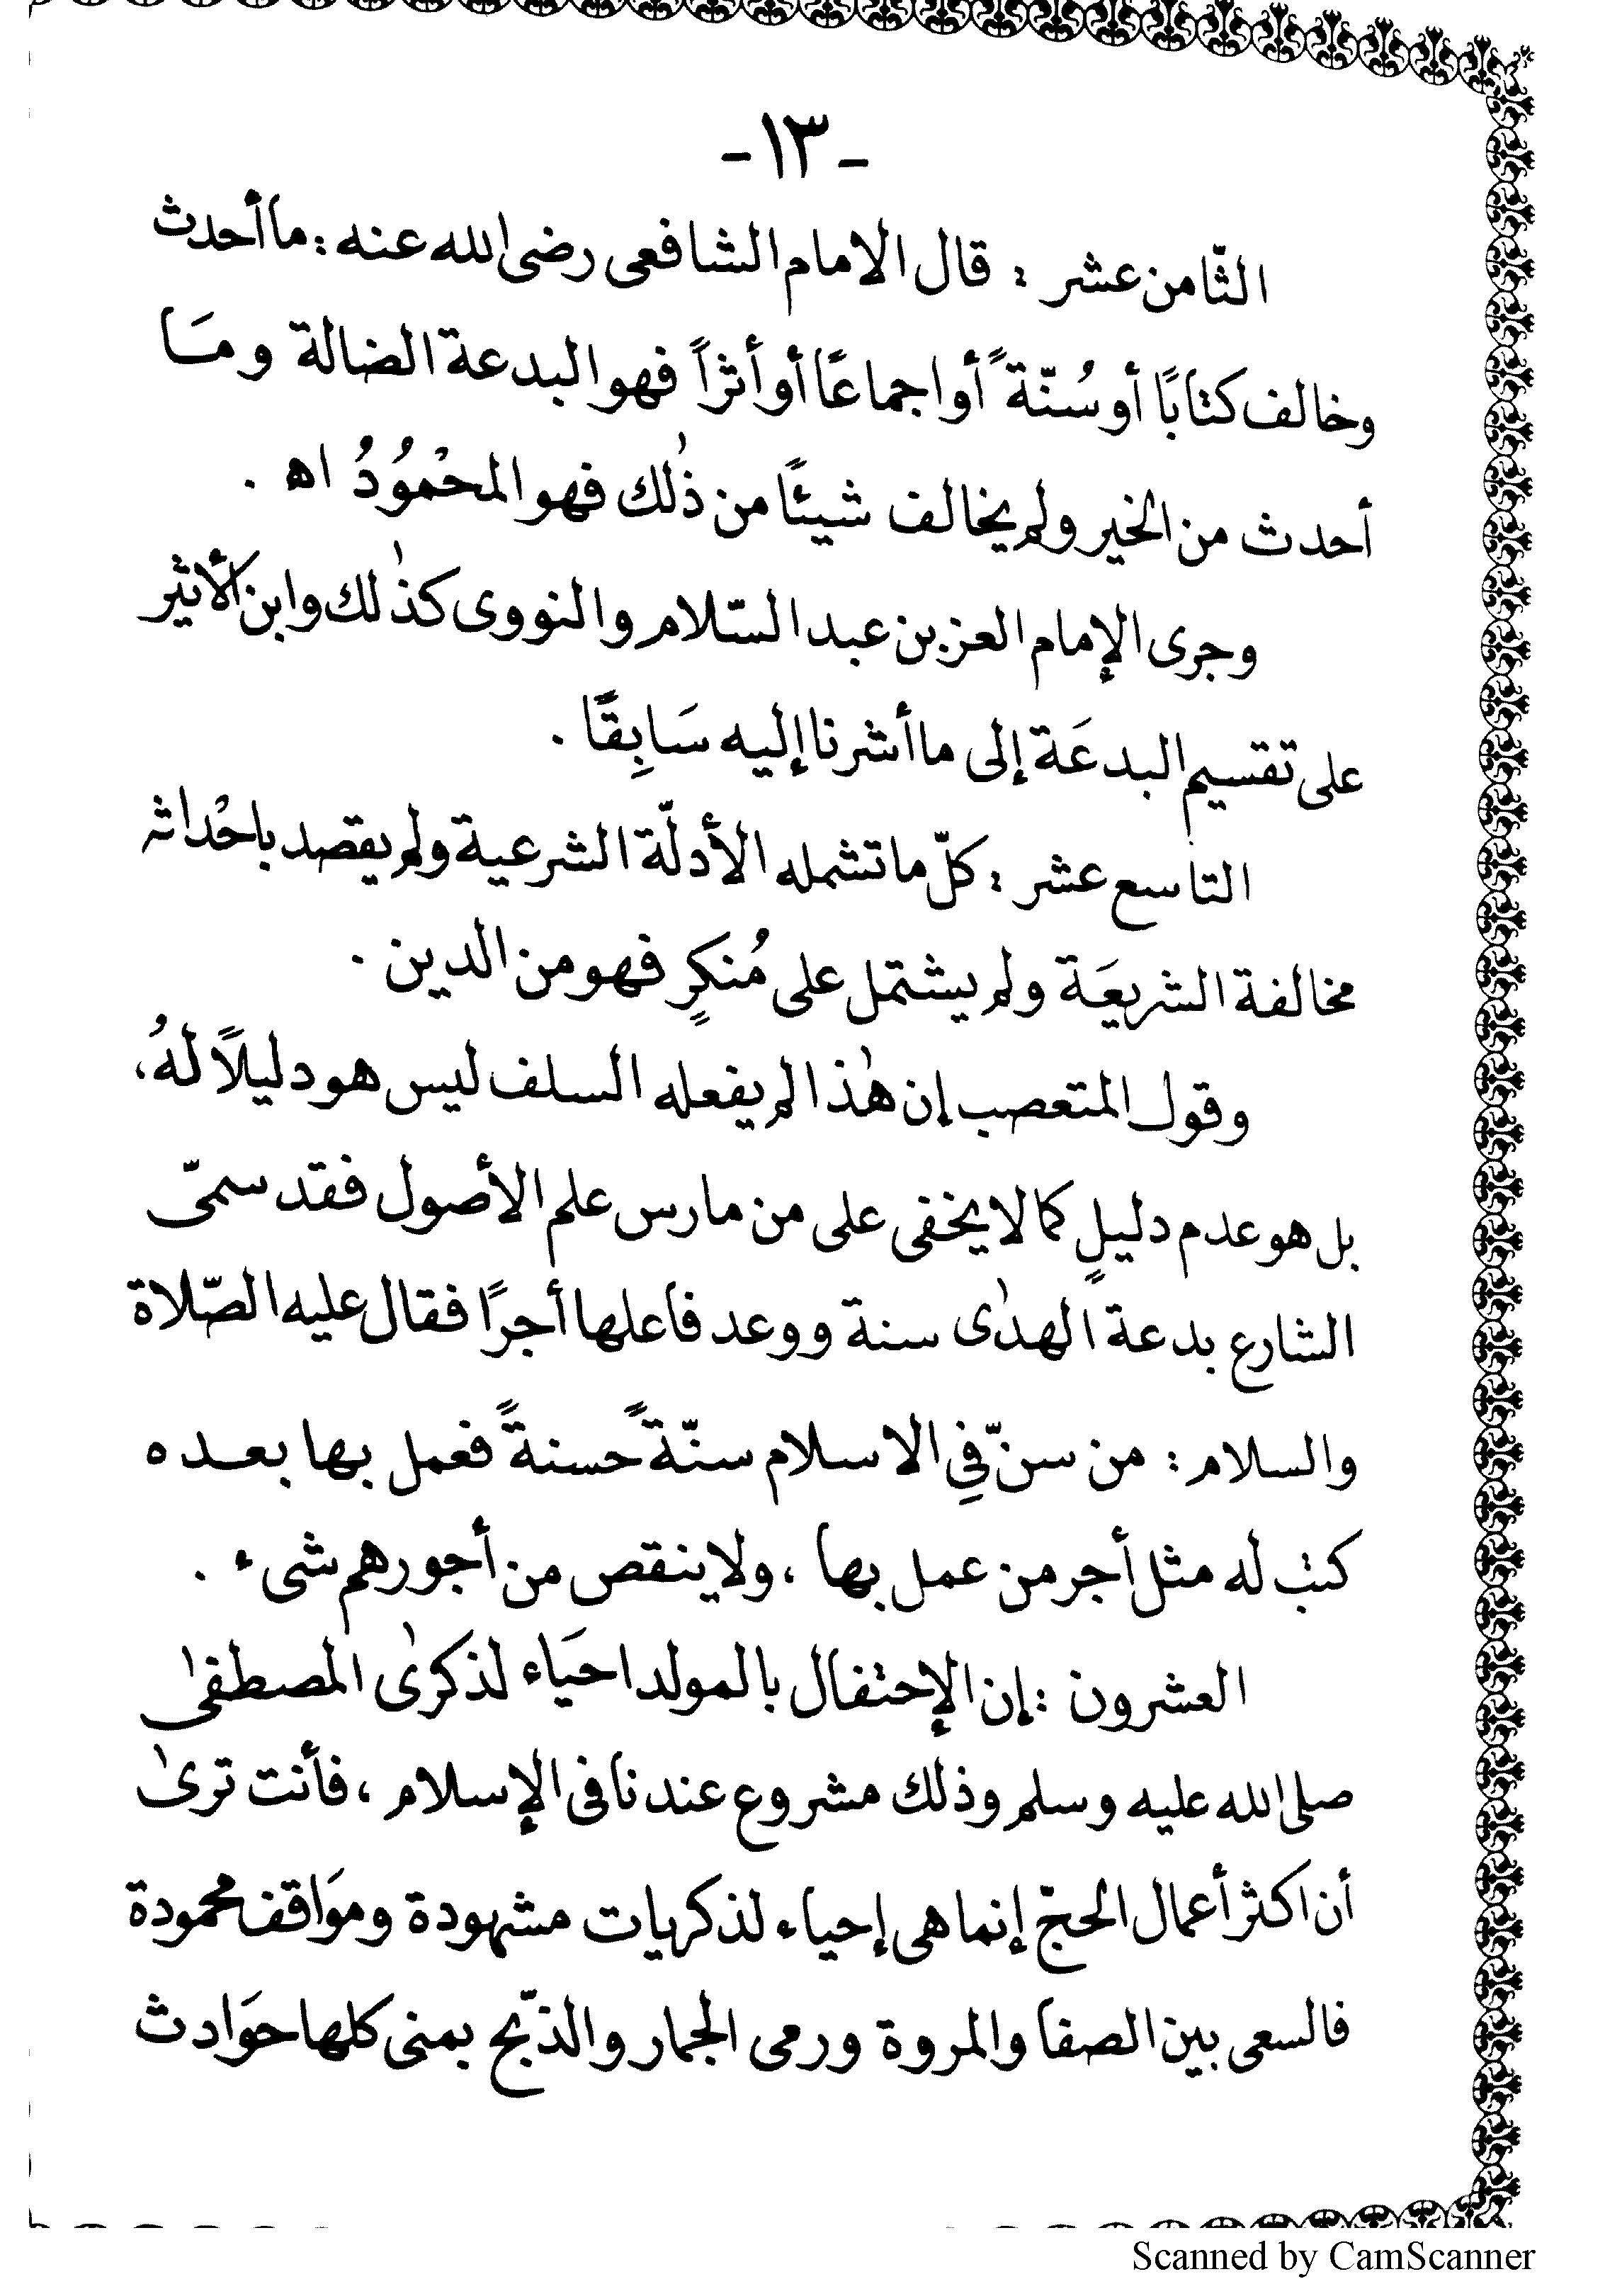 -١٣-
الثّامن عشر : قال الامام الشافعى رضى الله عنه : ما أحدث
وخالف كتابًا أو سُنّةً أو اجماعًا أو أثراً فهو البدعة الضالة ومَا
أحدث من الخير ولم يخالف شيئًا من ذٰلك فهو المحْمُودُ اه .
وجرى الإمام العز بن عبد السّلام والنووى كذٰلك وابن الأثير
على تقسيم البدعَة إلى ما أشرنا إليه سَابِقًا .
التاسع عشر : كلّ ما تشمله الأدلّة الشرعية ولم يقصد باحْداثه
مخالفة الشريعَة ولم يشتمل على مُنكرٍ فهو من الدين .
وقول المتعصب إن هٰذا لم يفعله السلف ليس هو دليلاً لهُ،
بل هو عدم دليلٍ كما لا يخفى على من مارس علم الأصول فقد سمىّ
الشارع بدعة الهدٰى سنة ووعد فاعلها أجرًا فقال عليه الصّلاة
والسلام : من سنّ فِي الاسلام سنّةً حسنةً فعمل بها بعده
كتب له مثل أجر من عمل بها ، ولا ينقص من أجورهم شىء .
العشرون : إن الإحتفال بالمولد احيَاء لذكرىٰ المصطفىٰ
صلى الله عليه وسلم وذلك مشروع عندنا فى الإسلام ، فأنت ترىٰ
أن اكثر أعمال الحجّ إنما هى إحياء لذكريات مشهودة ومَوَاقف محمودة
فالسعى بين الصفا والمروة ورمى الجمار والذّبح بمنى كلها حوَادث
Scanned by CamScanner